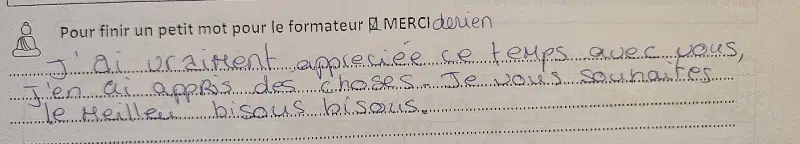 Pour finir un petit mot pour le formateur MERCI derien
J'ai vraiment appreciée ce temps avec vous,
J'en ai appris des choses. Je vous souhaites
le meilleu bisous bisous.